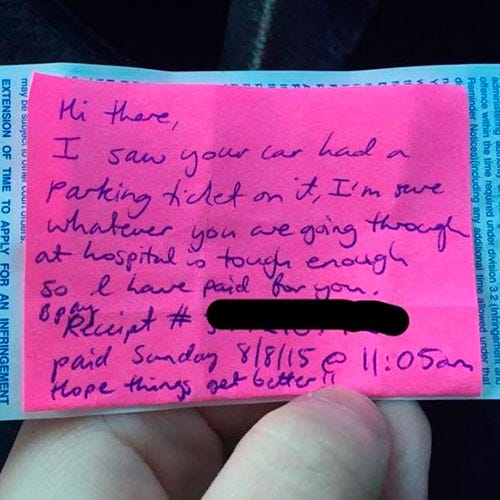 Hi there,
I saw your car had a
parking ticket on it, I'm sure
whatever you are going through
at hospital is tough enough
so I have paid for you.
Bpay
Receipt #
paid Sunday 8/8/15 @ 11:05am
Hope things get better!!
EXTENSION OF TIME TO APPLY FOR AN INFRINGEMENT
may be subject to
offence within the time required under division 3.3 (Infringement
Reminder Notices)(including any additional time allowed under that